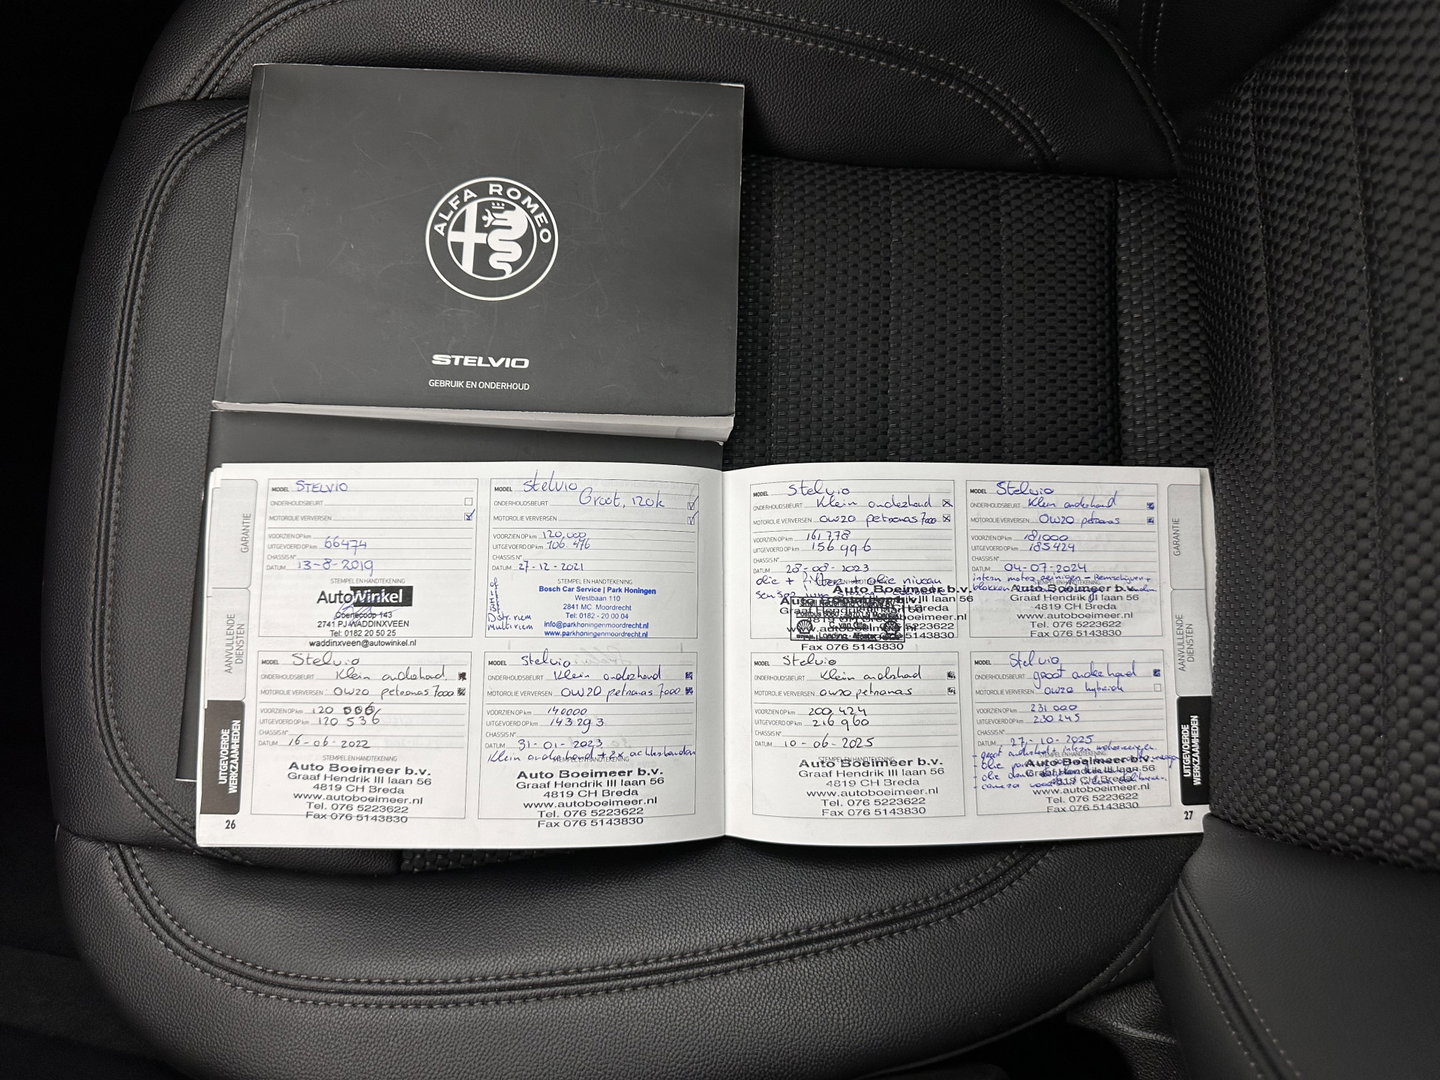 ALFA ROMEO
STELVIO
GEBRUIK EN ONDERHOUD
GARANTIE
AANVULLENDE DIENSTEN
UITGEVOERDE WERKZAAMHEDEN
26
MODEL STELVIO
ONDERHOUDSBEURT
MOTOROLIE VERVERSEN
VOORZIEN OP km
UITGEVOERD OP km 66474
CHASSIS N°
DATUM 13-8-2019
STEMPEL EN HANDTEKENING
AutoWinkel
Coenecoop 143
2741 PJ WADDINXVEEN
Tel: 0182 20 50 25
waddinxveen@autowinkel.nl
MODEL Stelvio
ONDERHOUDSBEURT Groot, 120k
MOTOROLIE VERVERSEN
VOORZIEN OP km 120.000
UITGEVOERD OP km 106 476
CHASSIS N°
DATUM 27-12-2021
STEMPEL EN HANDTEKENING
Bosch Car Service | Park Honingen
Westbaan 110
2841 MC Moordrecht
Tel: 0182 - 20 00 04
info@parkhoningenmoordrecht.nl
www.parkhoningenmoordrecht.nl
Distr. riem
multiriem
MODEL Stelvio
ONDERHOUDSBEURT Klein onderhoud
MOTOROLIE VERVERSEN 0W20 petronas 7000
VOORZIEN OP km 120
UITGEVOERD OP km 120 536
CHASSIS N°
DATUM 16-06-2022
STEMPEL EN HANDTEKENING
Auto Boeimeer b.v.
Graaf Hendrik III laan 56
4819 CH Breda
www.autoboeimeer.nl
Tel. 076 5223622
Fax 076 5143830
MODEL Stelvio
ONDERHOUDSBEURT Klein onderhoud
MOTOROLIE VERVERSEN 0W20 petronas 7000
VOORZIEN OP km 140000
UITGEVOERD OP km 143293
CHASSIS N°
DATUM 31-01-2023
Klein onderhoud + 2x achterbanden
STEMPEL EN HANDTEKENING
Auto Boeimeer b.v.
Graaf Hendrik III laan 56
4819 CH Breda
www.autoboeimeer.nl
Tel. 076 5223622
Fax 076 5143830
MODEL Stelvio
ONDERHOUDSBEURT Klein onderhoud
MOTOROLIE VERVERSEN 0W20 petronas 7000
VOORZIEN OP km 161778
UITGEVOERD OP km 156996
CHASSIS N°
DATUM 28-08-2023
STEMPEL EN HANDTEKENING
olie + filter + olie niveau
sensor
Auto Boeimeer b.v.
Graaf Hendrik III laan 56
4819 CH Breda
www.autoboeimeer.nl
Tel. 076 5223622
Fax 076 5143830
MODEL Stelvio
ONDERHOUDSBEURT Klein onderhoud
MOTOROLIE VERVERSEN 0W20 petronas
VOORZIEN OP km 181000
UITGEVOERD OP km 185424
CHASSIS N°
DATUM 04-07-2024
STEMPEL EN HANDTEKENING
intern motor reinigen - Remschijven +
blokken
Graaf Hendrik III laan 56
4819 CH Breda
www.autoboeimeer.nl
Tel. 076 5223622
Fax 076 5143830
MODEL Stelvio
ONDERHOUDSBEURT Klein onderhoud
MOTOROLIE VERVERSEN 0W20 petronas
VOORZIEN OP km 200424
UITGEVOERD OP km 216960
CHASSIS N°
DATUM 10-06-2025
STEMPEL EN HANDTEKENING
Auto Boeimeer b.v.
Graaf Hendrik III laan 56
4819 CH Breda
www.autoboeimeer.nl
Tel. 076 5223622
Fax 076 5143830
MODEL Stelvio
ONDERHOUDSBEURT groot onderhoud
MOTOROLIE VERVERSEN 0W20
VOORZIEN OP km 231000
UITGEVOERD OP km 230245
CHASSIS N°
DATUM 27-10-2025
STEMPEL EN HANDTEKENING
- groot onderhoud + intern
Auto Boeimeer b.v.
Graaf Hendrik III laan 56
4819 CH Breda
www.autoboeimeer.nl
Tel. 076 5223622
Fax 076 5143830
GARANTIE
AANVULLENDE DIENSTEN
UITGEVOERDE WERKZAAMHEDEN
27